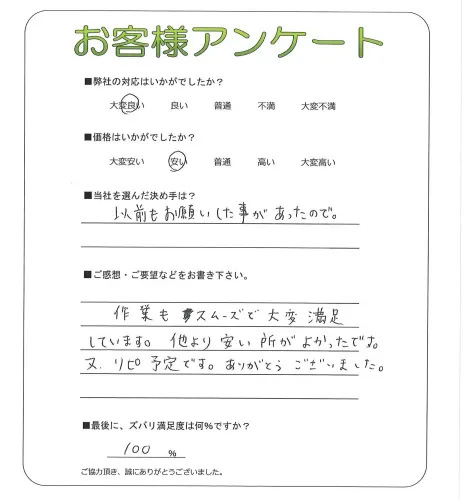 お客様アンケート
■弊社の対応はいかがでしたか?
大変良い 良い 普通 不満 大変不満
■価格はいかがでしたか?
大変安い 安い 普通 高い 大変高い
■当社を選んだ決め手は?
以前もお願いした事があったので。
■ご感想・ご要望などをお書き下さい。
作業もスムーズで大変満足
しています。他より安い所がよかったです。
又、リピ予定です。ありがとうございました。
■最後に、ズバリ満足度は何%ですか?
100 %
ご協力頂き、誠にありがとうございました。